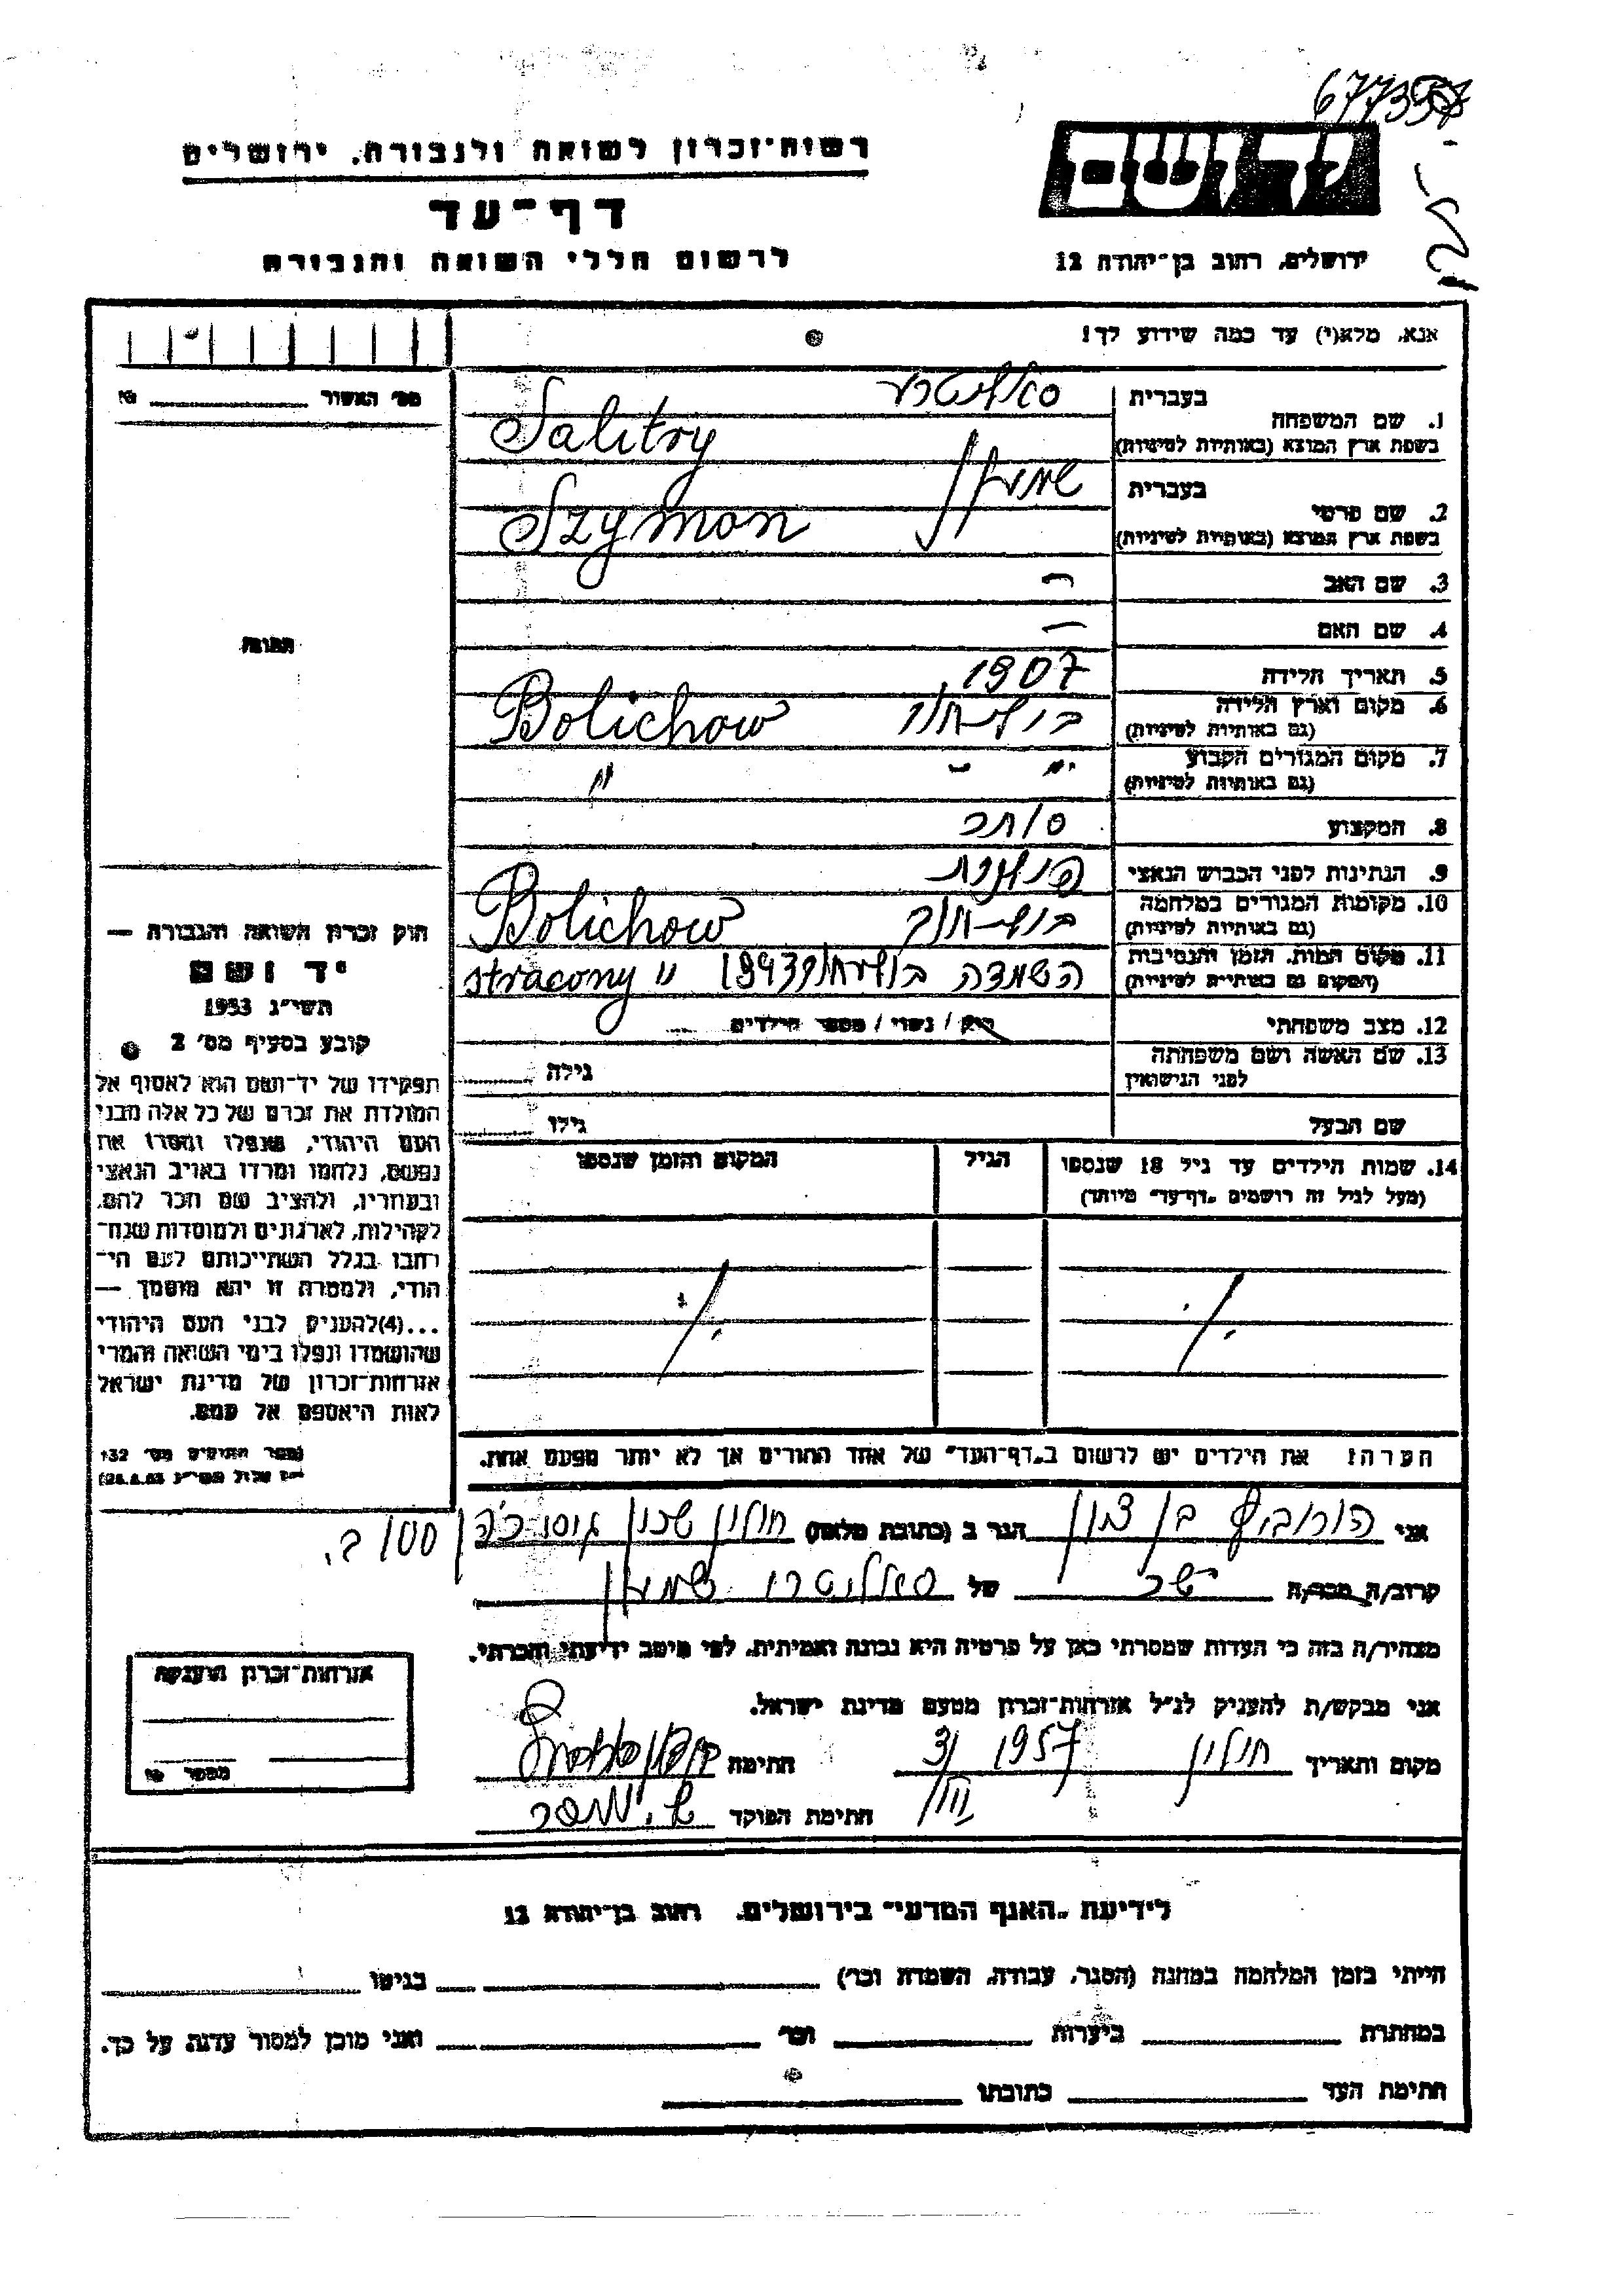 רשות-זכרון לשואה ולגבורה, ירושלים
דף-עד
לרשום חללי השואה והגבורה
יד ושם
ירושלים, רחוב בן-יהודה 12
אנא, מלא(י) עד כמה שידוע לך!
מס' האשור
בעברית
1. שם המשפחה
בשפת ארץ המוצא (באותיות לטיניות)
Salitry
בעברית שמעון
2. שם פרטי
בשפת ארץ המוצא (באותיות לטיניות)
Szymon
3. שם האב —
4. שם האם —
תמונה
5. תאריך הלידה 1907
6. מקום וארץ הלידה
(גם באותיות לטיניות)
בולחוב Bolichow
7. מקום המגורים הקבוע
(גם באותיות לטיניות)
" - "
8. המקצוע סוחר
9. הנתינות לפני הכבוש הנאצי פולנית
10. מקומות המגורים במלחמה
(גם באותיות לטיניות)
Bolichow
11. מקום המות, הזמן והנסיבות
(המקום גם באותיות לטיניות)
השמדה 1943 stracony "
12. מצב משפחתי רוק / נשוי / מספר הילדים
13. שם האשה ושם משפחתה
לפני הנישואין
גילה
שם הבעל גילו
14. שמות הילדים עד גיל 18 שנספו
(מעל לגיל זה רושמים "דף-עד" מיוחד)
הגיל
המקום והזמן שנספו
הערה: את הילדים יש לרשום ב"דף-העד" של אחד ההורים אך לא יותר מפעם אחת.
חוק זכרון השואה והגבורה —
יד ושם
תשי"ג 1953
קובע בסעיף מס' 2
תפקידו של יד-ושם הוא לאסוף אל
המולדת את זכרם של כל אלה מבני
העם היהודי, שנפלו ומסרו את
נפשם, נלחמו ומרדו באויב הנאצי
ובעוזריו, ולהציב שם וזכר להם,
לקהילות, לארגונים ולמוסדות שנח-
רבו בגלל השתייכותם לעם הי-
הודי, ולמטרה זו יהא מוסמך —
...(4)להעניק לבני העם היהודי
שהושמדו ונפלו בימי השואה והמרי
אזרחות-זכרון של מדינת ישראל
לאות היאספם אל עמם.
(ספר החוקים מס' 132
אני הורוביץ בן ציון הגר ב (כתובת מלאה) חולון שכון
קרוב/ה מכר/ה של סאליטרי שמעון
מצהיר/ה בזה כי העדות שמסרתי כאן על פרטיה היא נכונה ואמיתית, לפי מיטב ידיעתי והכרתי.
אני מבקש/ת להעניק לנ"ל אזרחות-זכרון מטעם מדינת ישראל.
מקום ותאריך חולון 1957 חתימה
חתימת הפוקד
אזרחות-זכרון הוענקה
מספר
לידיעת "האגף המדעי" בירושלים, רחוב בן-יהודה 12
הייתי בזמן המלחמה במחנה (הסגר, עבודה, השמדה וכו') בגיטו
במחתרת ביערות וכו' ואני מוכן למסור עדות על כך.
חתימת העד כתובתו